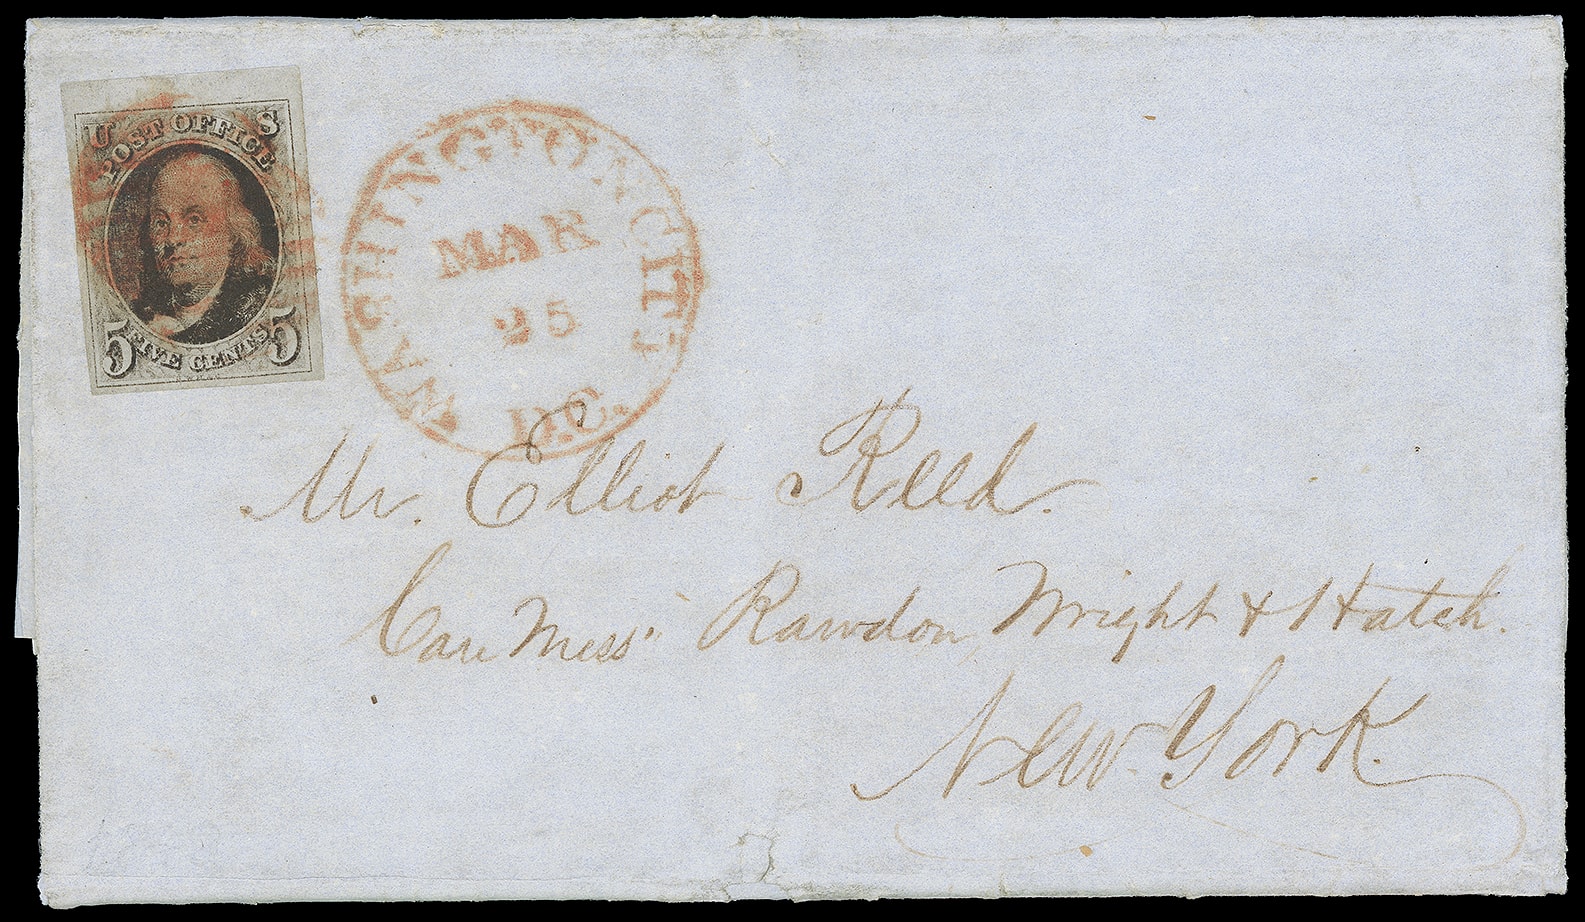 U S
POST OFFICE
5 FIVE CENTS 5
WASHINGTON CITY
MAR
25
D.C.
Mr. Elliot Reed.
Care Mess" Rawdon, Wright & Hatch.
New York.